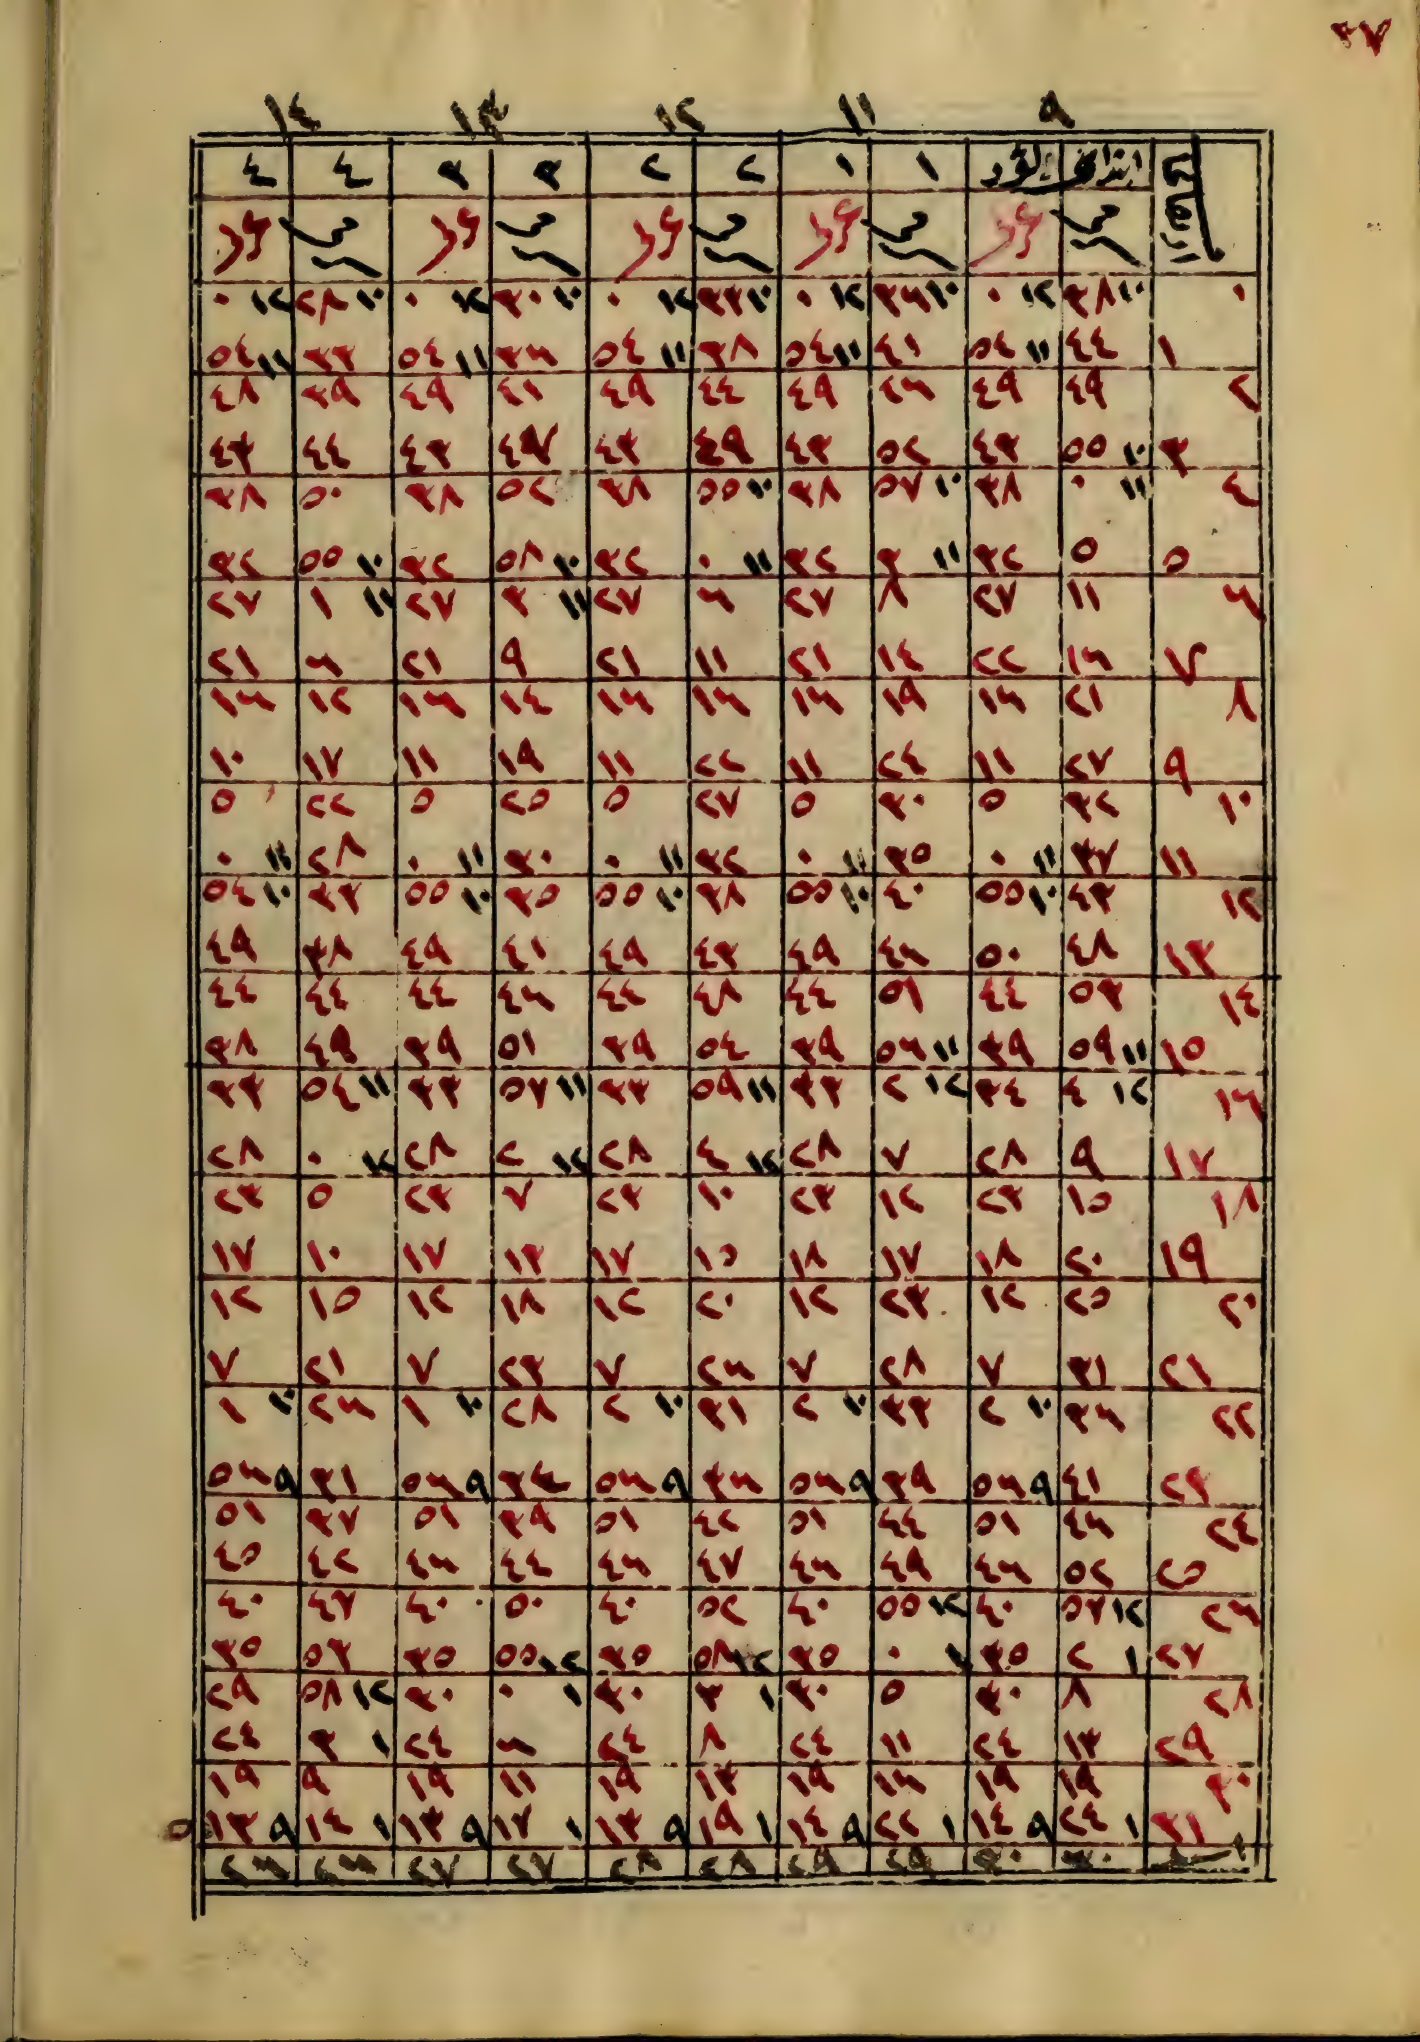 ٣٧
٩ ١١ ١٢ ١٣ ١٤
١ ١ ٢ ٢ ٣ ٣ ٤ ٤
٠ ١٠ ٣٨ ١٢ ٠ ١٠ ٣٦ ١٢ ٠ ١٠ ٣٣ ١٢ ٠ ١٠ ٣٠ ١٢ ٠ ١٠ ٢٨ ١٢ ٠
١ ٤٤ ١١ ٥٤ ٤١ ١١ ٥٤ ٣٨ ١١ ٥٤ ٣٦ ١١ ٥٤ ٣٣ ١١ ٥٤
٢ ٤٩ ٤٩ ٤٦ ٤٩ ٤٤ ٤٩ ٤١ ٤٩ ٣٩ ٤٨
٣ ١٠ ٥٥ ٤٣ ٥٢ ٤٣ ٤٩ ٤٣ ٤٧ ٤٣ ٤٤ ٤٣
٤ ١١ ٠ ٣٨ ١٠ ٥٧ ٣٨ ١٠ ٥٥ ٣٨ ٥٢ ٣٨ ٥٠ ٣٨
٥ ٥ ٣٢ ١١ ٣ ٣٢ ١١ ٠ ٣٢ ١٠ ٥٨ ٣٢ ١٠ ٥٥ ٣٢
٦ ١١ ٢٧ ٨ ٢٧ ٦ ٢٧ ١١ ٣ ٢٧ ١١ ١ ٢٧
٧ ١٦ ٢٢ ١٤ ٢١ ١١ ٢١ ٩ ٢١ ٦ ٢١
٨ ٢١ ١٦ ١٩ ١٦ ١٦ ١٦ ١٤ ١٦ ١٢ ١٦
٩ ٢٧ ١١ ٢٤ ١١ ٢٢ ١١ ١٩ ١١ ١٧ ١٠
١٠ ٣٢ ٥ ٣٠ ٥ ٢٧ ٥ ٢٥ ٥ ٢٢ ٥
١١ ٣٧ ١١ ٠ ٣٥ ١١ ٠ ٣٢ ١١ ٠ ٣٠ ١١ ٠ ٢٨ ١١ ٠
١٢ ٤٣ ١٠ ٥٥ ٤٠ ١٠ ٥٥ ٣٨ ١٠ ٥٥ ٣٥ ١٠ ٥٥ ٣٣ ١٠ ٥٤
١٣ ٤٨ ٥٠ ٤٦ ٤٩ ٤٣ ٤٩ ٤١ ٤٩ ٣٨ ٤٩
١٤ ٥٣ ٤٤ ٥١ ٤٤ ٤٨ ٤٤ ٤٦ ٤٤ ٤٤ ٤٤
١٥ ١١ ٥٩ ٣٩ ١١ ٥٦ ٣٩ ٥٤ ٣٩ ٥١ ٣٩ ٤٩ ٣٨
١٦ ١٢ ٤ ٣٤ ١٢ ٢ ٣٣ ١١ ٥٩ ٣٣ ١١ ٥٧ ٣٣ ١١ ٥٤ ٣٣
١٧ ٩ ٢٨ ٧ ٢٨ ١٢ ٤ ٢٨ ١٢ ٢ ٢٨ ١٢ ٠ ٢٨
١٨ ١٥ ٢٣ ١٢ ٢٣ ١٠ ٢٣ ٧ ٢٣ ٥ ٢٣
١٩ ٢٠ ١٨ ١٧ ١٨ ١٥ ١٧ ١٣ ١٧ ١٠ ١٧
٢٠ ٢٥ ١٢ ٢٣ ١٢ ٢٠ ١٢ ١٨ ١٢ ١٥ ١٢
٢١ ٣١ ٧ ٢٨ ٧ ٢٦ ٧ ٢٣ ٧ ٢١ ٧
٢٢ ٣٦ ١٠ ٢ ٣٣ ١٠ ٢ ٣١ ١٠ ٢ ٢٨ ١٠ ١ ٢٦ ١٠ ١
٢٣ ٤١ ٩ ٥٦ ٣٩ ٩ ٥٦ ٣٦ ٩ ٥٦ ٣٤ ٩ ٥٦ ٣١ ٩ ٥٦
٢٤ ٤٦ ٥١ ٤٤ ٥١ ٤٢ ٥١ ٣٩ ٥١ ٣٧ ٥١
٢٥ ٥٢ ٤٦ ٤٩ ٤٦ ٤٧ ٤٦ ٤٤ ٤٦ ٤٢ ٤٥
٢٦ ١٢ ٥٧ ٤٠ ١٢ ٥٥ ٤٠ ٥٢ ٤٠ ٥٠ ٤٠ ٤٧ ٤٠
٢٧ ١ ٢ ٣٥ ١ ٠ ٣٥ ١٢ ٥٨ ٣٥ ١٢ ٥٥ ٣٥ ٥٣ ٣٥
٢٨ ٨ ٣٠ ٥ ٣٠ ١ ٣ ٣٠ ١ ٠ ٣٠ ١٢ ٥٨ ٢٩
٢٩ ١٣ ٢٤ ١١ ٢٤ ٨ ٢٤ ٦ ٢٤ ١ ٣ ٢٤
٣٠ ١٩ ١٩ ١٦ ١٩ ١٣ ١٩ ١١ ١٩ ٩ ١٩
٣١ ١ ٢٤ ٩ ١٤ ١ ٢٢ ٩ ١٤ ١ ١٩ ٩ ١٣ ١ ١٧ ٩ ١٣ ١ ١٤ ٩ ١٣ ٥
٣٠ ٣٠ ٢٩ ٢٩ ٢٨ ٢٨ ٢٧ ٢٧ ٢٦ ٢٦